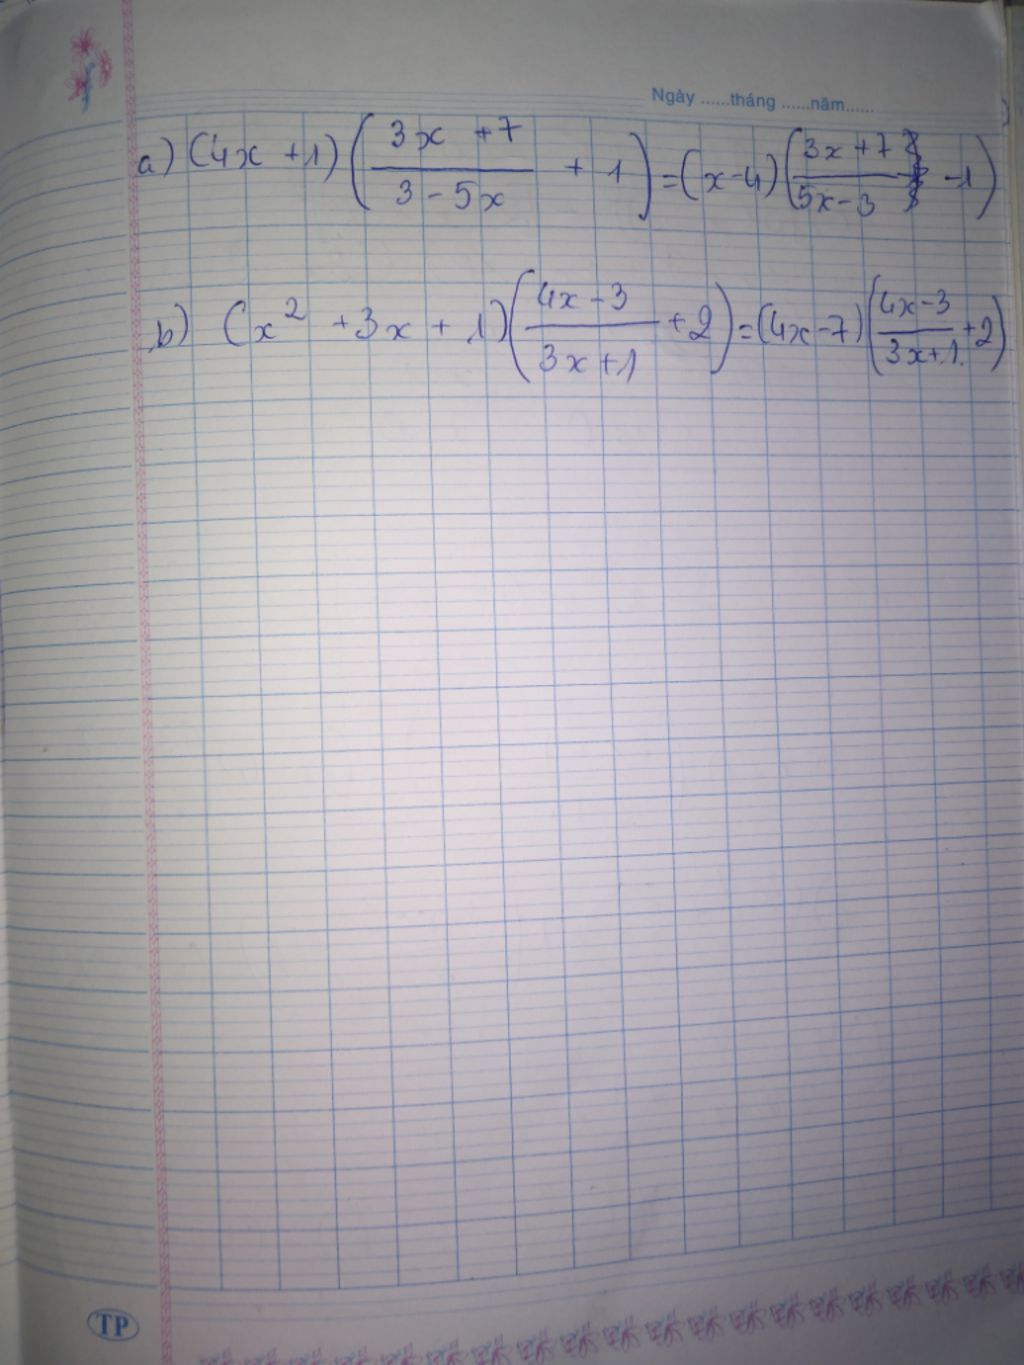 Ngày ......tháng ......năm......
a) (4x + 1) ( \frac{3x + 7}{3 - 5x} + 1 ) = (x - 4) ( \frac{3x + 7}{5x - 3} - 1 )
b) (x² + 3x + 1) ( \frac{4x - 3}{3x + 1} + 2 ) = (4x - 7) ( \frac{4x - 3}{3x + 1} + 2 )
TP